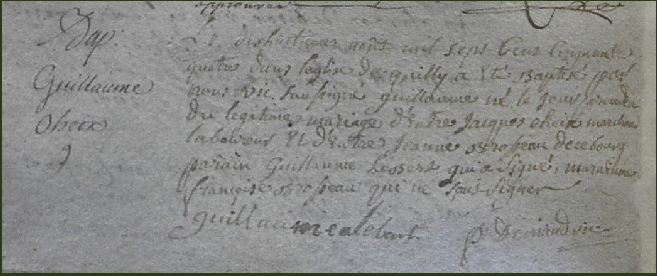 Bap.
Guillaume
Choix
Le dishuitieme aout mil sept cens cinquante
quatre dans leglise de quilly a été Baptisé par
nous vic. Soussigné guillaume né le jour
du legitime mariage d'Entre Jacques choix marchand
laboureur Et d'Entre Jeanne de ce bourg
parain Guillaume qui a signé; maraine
françoise qui ne sait signer
guillaume